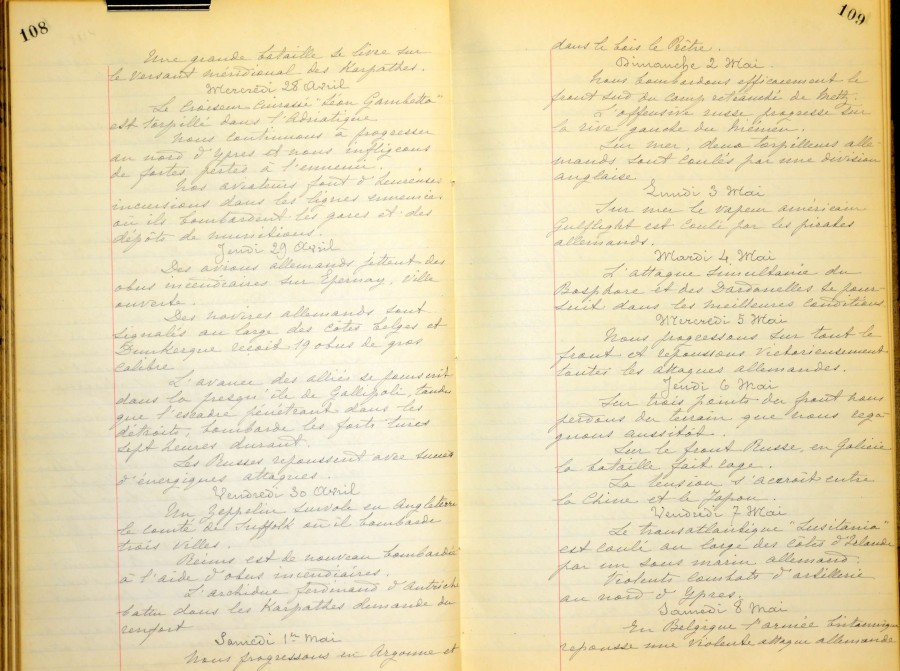 108
Une grande bataille se livre sur
le versant méridional des Karpathes.
Mercredi 28 Avril
Le Croiseur Cuirassé "Léon Gambetta"
est torpillé dans l'Adriatique
Nous continuons à progresser
au nord d'Ypres et nous infligeons
de fortes pertes à l'ennemi.
Nos aviateurs font d'heureuses
incursions dans les lignes ennemies
où ils bombardent les gares et des
dépôts de munitions.
Jeudi 29 Avril
Des avions allemands jettent des
obus incendiaires sur Epernay, ville
ouverte.
Des navires allemands sont
signalés au large des côtes belges et
Dunkerque reçoit 19 obus de gros
calibre.
L'avance des alliés se poursuit
dans la presqu'île de Gallipoli, tandis
que l'escadre pénétrant dans les
détroits, bombarde les forts turcs
sept heures durant.
Les Russes repoussent avec succès
d'énergiques attaques.
Vendredi 30 Avril
Un Zeppelin survole en Angleterre
le comté de Suffolk où il bombarde
trois villes.
Reims est de nouveau bombardée
à l'aide d'obus incendiaires.
L'archiduc Ferdinand d'Autriche
battu dans les Karpathes demande du
renfort
Samedi 1er Mai
Nous progressons en Argonne et
109
dans le bois le Prêtre.
Dimanche 2 Mai.
Nous bombardons efficacement le
front sud du camp retranché de Metz.
L'offensive russe progresse sur
la rive gauche du Niémen.
Sur mer, deux torpilleurs alle-
mands sont coulés par une division
anglaise
Lundi 3 Mai
Sur mer le vapeur américain
Gulflight est coulé par les pirates
allemands.
Mardi 4 Mai
L'attaque simultanée du
Bosphore et des Dardanelles se pour-
suit dans les meilleures conditions.
Mercredi 5 Mai
Nous progressons sur tout le
front et repoussons victorieusement
toutes les attaques allemandes.
Jeudi 6 Mai
Sur trois points du front nous
perdons du terrain que nous rega-
gnons aussitôt.
Sur le front Russe, en Galicie
la bataille fait rage.
La tension s'accroît entre
la Chine et le Japon.
Vendredi 7 Mai
Le transatlantique "Lusitania"
est coulé au large des côtes d'Irlande
par un sous marin allemand.
Violents combats d'artillerie
au nord d'Ypres.
Samedi 8 Mai
En Belgique l'armée britannique
repousse une violente attaque allemande